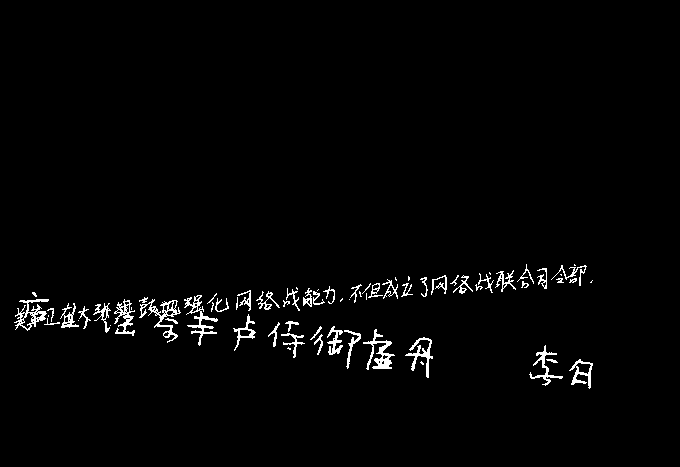 美军正在大张旗鼓地强化网络战能力，不但成立了网络战联合司令部，
卢侍御虚舟 李白